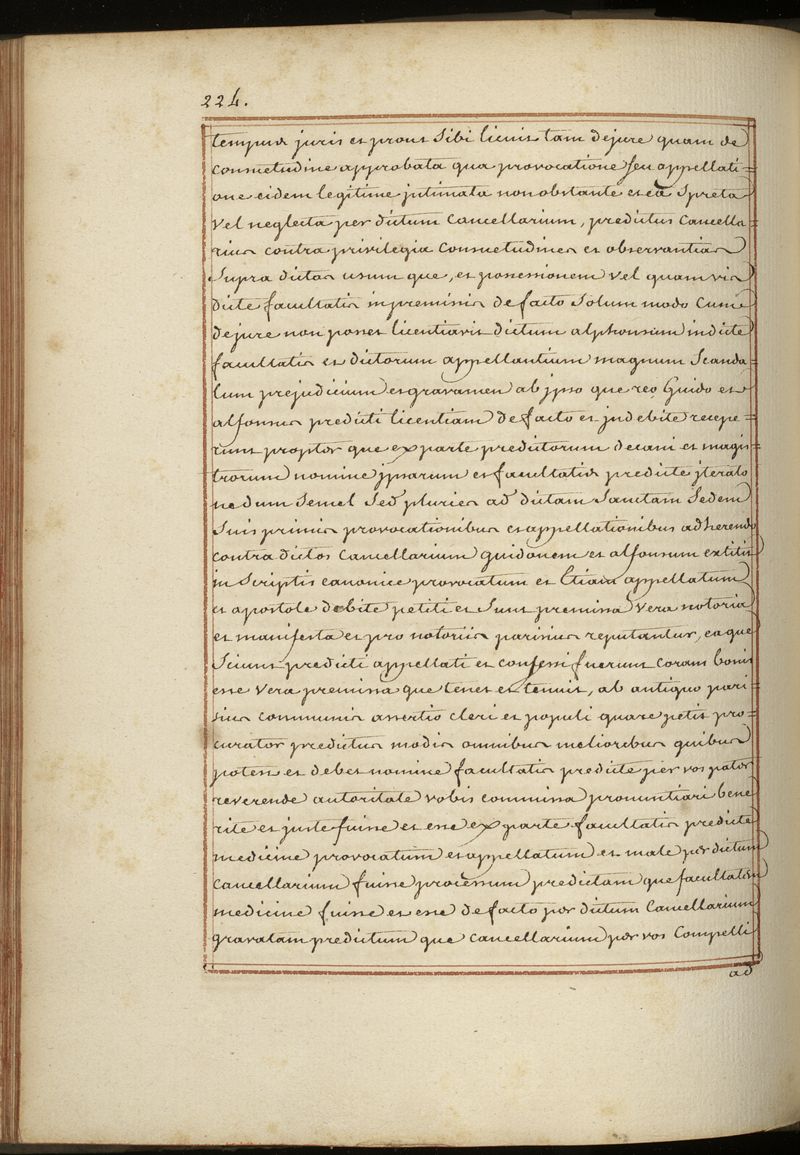 224.
tempus juris et prout Sibi licuit tam dejure quam de
consuetudine approbata qua provocatione seu appellati=
one eidem legitime jntimata non obstante et ea Spreta
vel neglecta per dictum Cancellarium, predictus Cancella
rius contra privilegia Consuetudines et observantias
Supra dictas usum que, et possessionem vel quam vis
dicte facultatis in premissis de facto Solum modo Cum
dejure non posset licentiavit dictum alphonsum in dicte
facultatis et dictorum appellantium magnum Scanda=
lum prejudicium et gravamen ab jpso que reo Guido et
alfonsus predicti licentiam de facto et jndebite recepe=
runt propter que ex parte predictorum decani et magis=
trorum nomine jpsarum et facultatis predicte jterato
nedum Semel Sed pluries ad dictam Sanctam Sedem
Suis primis provocationibus et appellationibus adherendo
contra dictos Cancellarium guidonem et alfonsum extitit
in Scriptis canonice provocatum et Etiam appellatum
et apostole debite petiti et Sunt premissa vera notoria
et manifesta et pro notoriis parisius reputantur, ea que
Sciunt predicti appellati et confessi fuerunt coram bonis
esse vera premissa que tenet et tenuit, ab antiquo pari=
sius communis assertio cleri et populi quare petit pro=
curator predictus modis omnibus melioribus quibus
potest et debet nomine facultatis predicte per vos pater
reverende autoritate vobis commissa pronuntiari bene
rite et juste fuisse et esse ex parte facultatis predicte
medicine provocatum et appellatum et male per dictum
Cancellarium fuisse processum predictam que facultatem
medicine fuisse et esse de facto per dictum Cancellarium
gravatam predictum que cancellarium per vos Compelli
ad